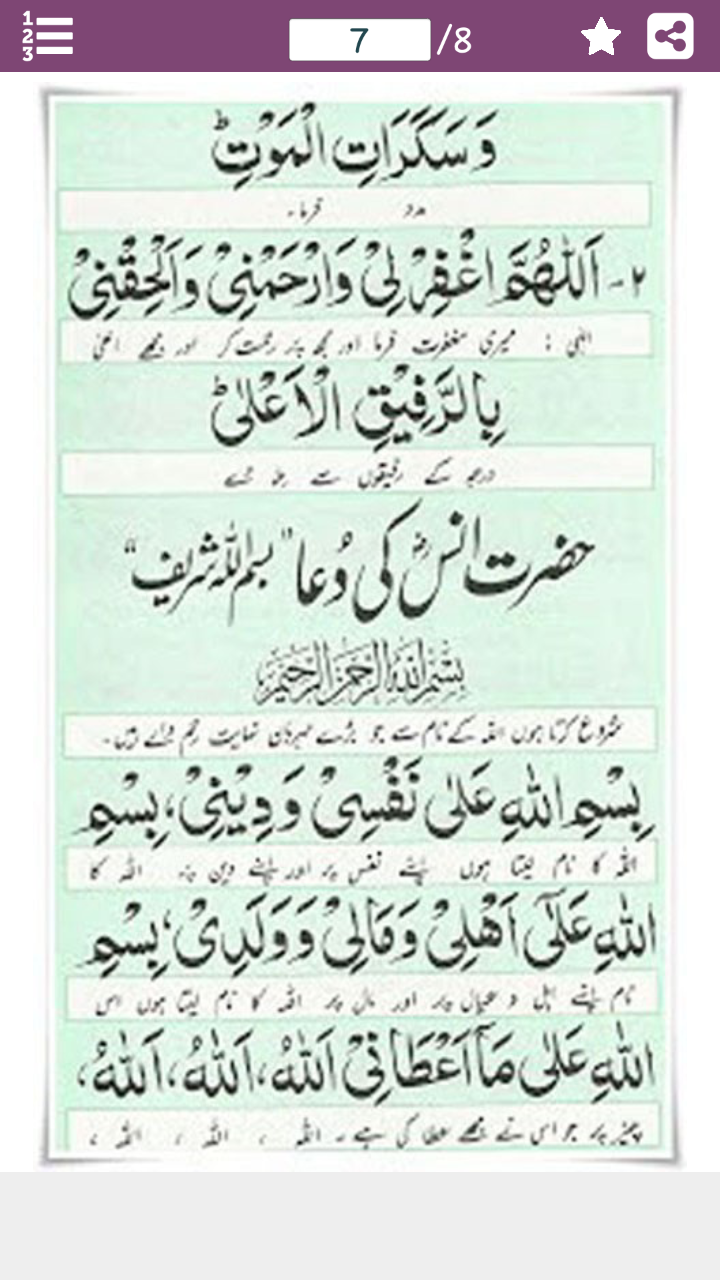 1
2
3
7 /8
وَسَكَرَاتِ الْمَوْتِؕ
مدد فرما۔
۲۔ اَللّٰهُمَّ اغْفِرْ لِیْ وَارْحَمْنِیْ وَاَلْحِقْنِیْ
الٰہی : میری مغفرت فرما اور مجھ پر رحمت کر اور مجھے اعلیٰ
بِالرَّفِیْقِ الْاَعْلٰیؕ
درجہ کے رفیقوں سے
حضرت انسؓ کی دُعا "بسم اللہ شریف"
بِسْمِ اللهِ الرَّحْمٰنِ الرَّحِيْمِ
شروع کرتا ہوں اللہ کے نام سے جو بڑے مہربان نہایت رحم والے ہیں۔
بِسْمِ اللهِ عَلٰی نَفْسِیْ وَدِیْنِیْ، بِسْمِ
اللہ کا نام لیتا ہوں اپنے نفس پر اور اپنے دین پر۔ اللہ کا
اللهِ عَلٰۤی اَهْلِیْ وَمَالِیْ وَوَلَدِیْ، بِسْمِ
نام اپنے اہل و عیال پر اور مال پر اللہ کا نام لیتا ہوں اس
اللهِ عَلٰی مَاۤ اَعْطَانِیْ اَللهُ، اَللهُ، اَللهُ،
چیز پر جو اس نے مجھے عطا کی ہے۔ اللہ ، اللہ ، اللہ ،